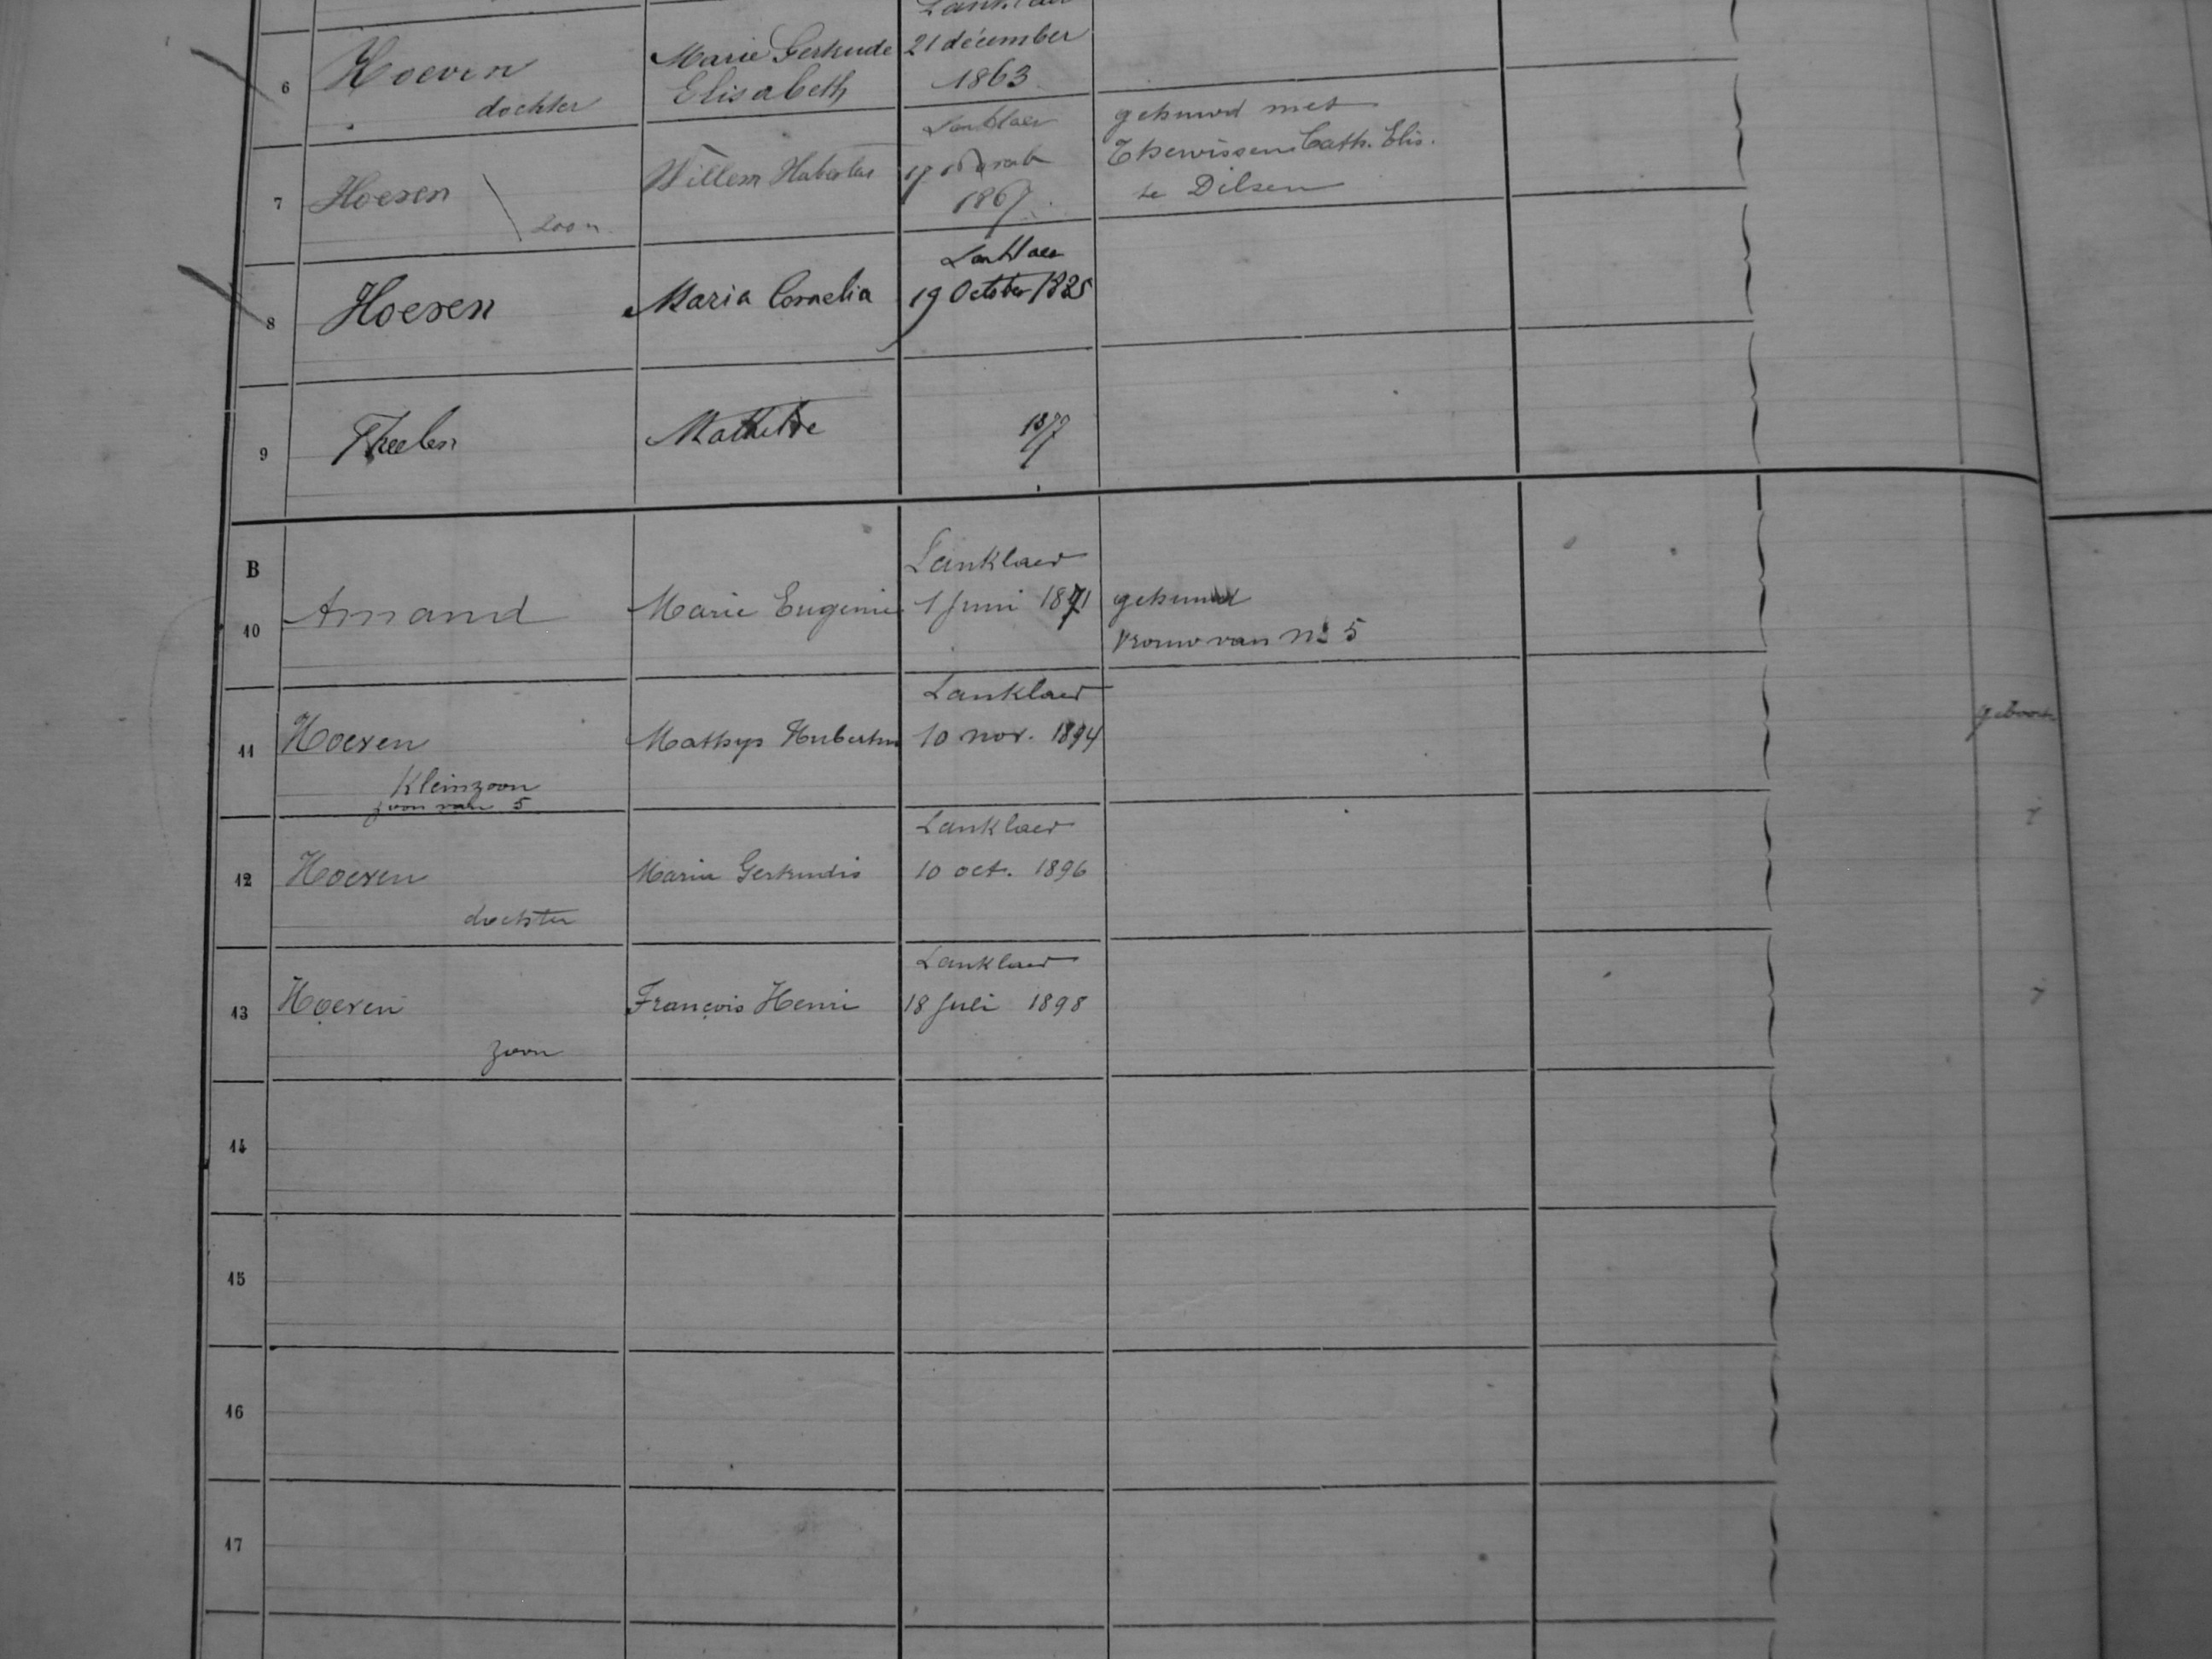 6 Hoeven Marie Gertrude 21 décember
dochter Elisabeth 1863
7 Hoeven Willem Hubertus Lanklaer gehuwd met
zoon 17 1867 Thewissen Cath. Elis.
te Dilsen
Lanklaer
8 Hoeven Maria Cornelia 19 October 1825
9 Theelen Mathilde 1877
B
Lanklaer
10 Amand Marie Eugenie 1 Juni 1871 gehuwd
vrouw van No 5
Lanklaer
11 Hoeven Mathys Hubertus 10 nov. 1894 geboorte
Kleinzoon
zoon van 5
Lanklaer
12 Hoeven Maria Gertrudis 10 oct. 1896
dochter
Lanklaer
13 Hoeven François Henri 18 Juli 1898
zoon
14
15
16
17